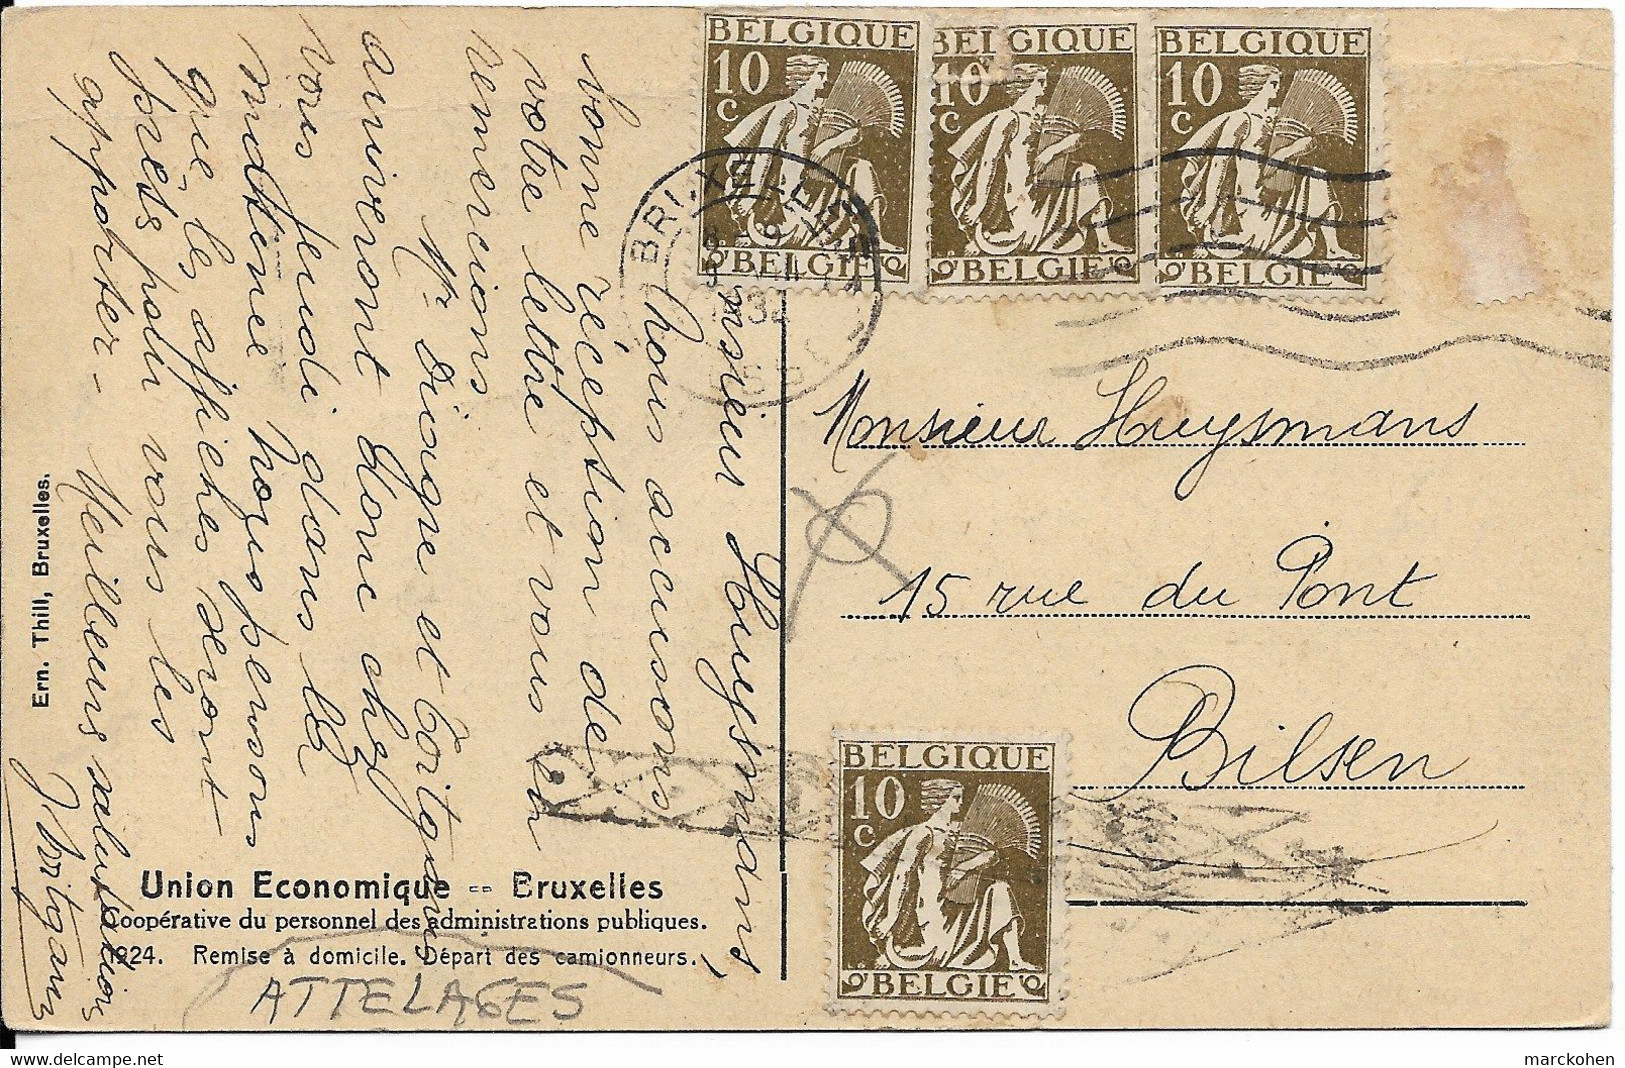 BELGIQUE
10
C
BELGIE
BELGIQUE
10
C
BELGIE
BELGIQUE
10
C
BELGIE
1932
Monsieur Huysmans,
Nous accusons
bonne réception de
votre lettre et vous en
remercions
Mr Diongre et
arriveront donc chez
vous jeudi dans la
Nous pensons
que les affiches seront
prêts pour vous les
apporter -
Meilleurs salutations
Monsieur Huysmans
15 rue du Pont
Bilsen
BELGIQUE
10
C
BELGIE
Ern. Thill, Bruxelles.
Union Economique -- Bruxelles
Coopérative du personnel des administrations publiques.
1924. Remise à domicile. Départ des camionneurs.
ATTELAGES
delcampe.net
marckohen